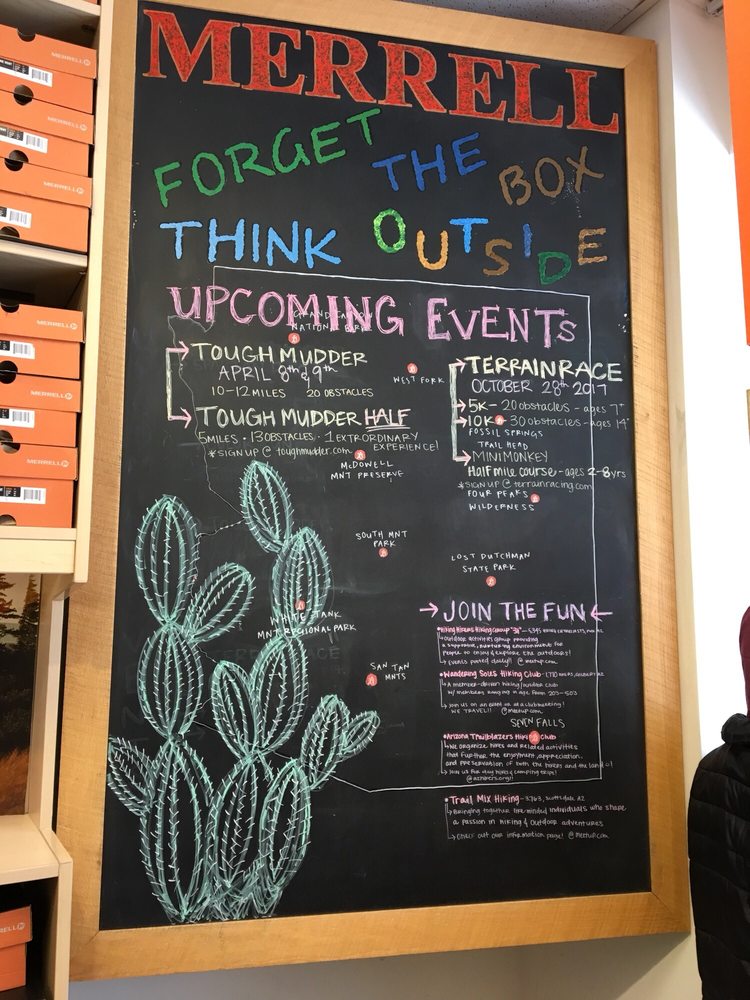 MERRELL
FORGET THE BOX
THINK OUTSIDE
UPCOMING EVENTS
GRAND CANYON
NATIONAL PARK
TOUGH MUDDER
APRIL 8th & 9th
10-12 MILES 20 OBSTACLES
WEST FORK
TOUGH MUDDER HALF
5 MILES · 13 OBSTACLES · 1 EXTRORDINARY
EXPERIENCE!
*SIGN UP @ toughmudder.com
MCDOWELL
MNT PRESERVE
TERRAIN RACE
OCTOBER 28th 2017
5K - 20 obstacles - ages 7+
10K 30 OBSTACLES - ages 14+
FOSSIL SPRINGS
TRAIL HEAD
MINI MONKEY
Half mile course - ages 2-8 yrs
*SIGN UP @ terrainracing.com
FOUR PEAKS
WILDERNESS
SOUTH MNT
PARK
LOST DUTCHMAN
STATE PARK
WHITE TANK
MNT REGIONAL PARK
SAN TAN
MNTS
→ JOIN THE FUN ←
Outdoor activities group providing
a supportive, nurturing environment for
people to enjoy & explore the outdoors!
Events posted daily!! @ meetup.com
Wandering Soles Hiking Club
A member-driven hiking/outdoor club
Join us on an event or at a club meeting!
WE TRAVEL!! @meetup.com
SEVEN FALLS
Arizona Trailblazers Hiking Club
We organize hikes and related activities
that further the enjoyment, appreciation,
and preservation of both the hikers and the land!
Join us for day hikes & camping trips!
@azhikers.org!!
Trail Mix Hiking - 3,763, Scottsdale AZ
Bringing together like minded individuals who share
a passion in hiking & outdoor adventures
Check out our information page! @ meetup.com
MERRELL
MERRELL
MERRELL
MERRELL
MERRELL
MERRELL
MERRELL